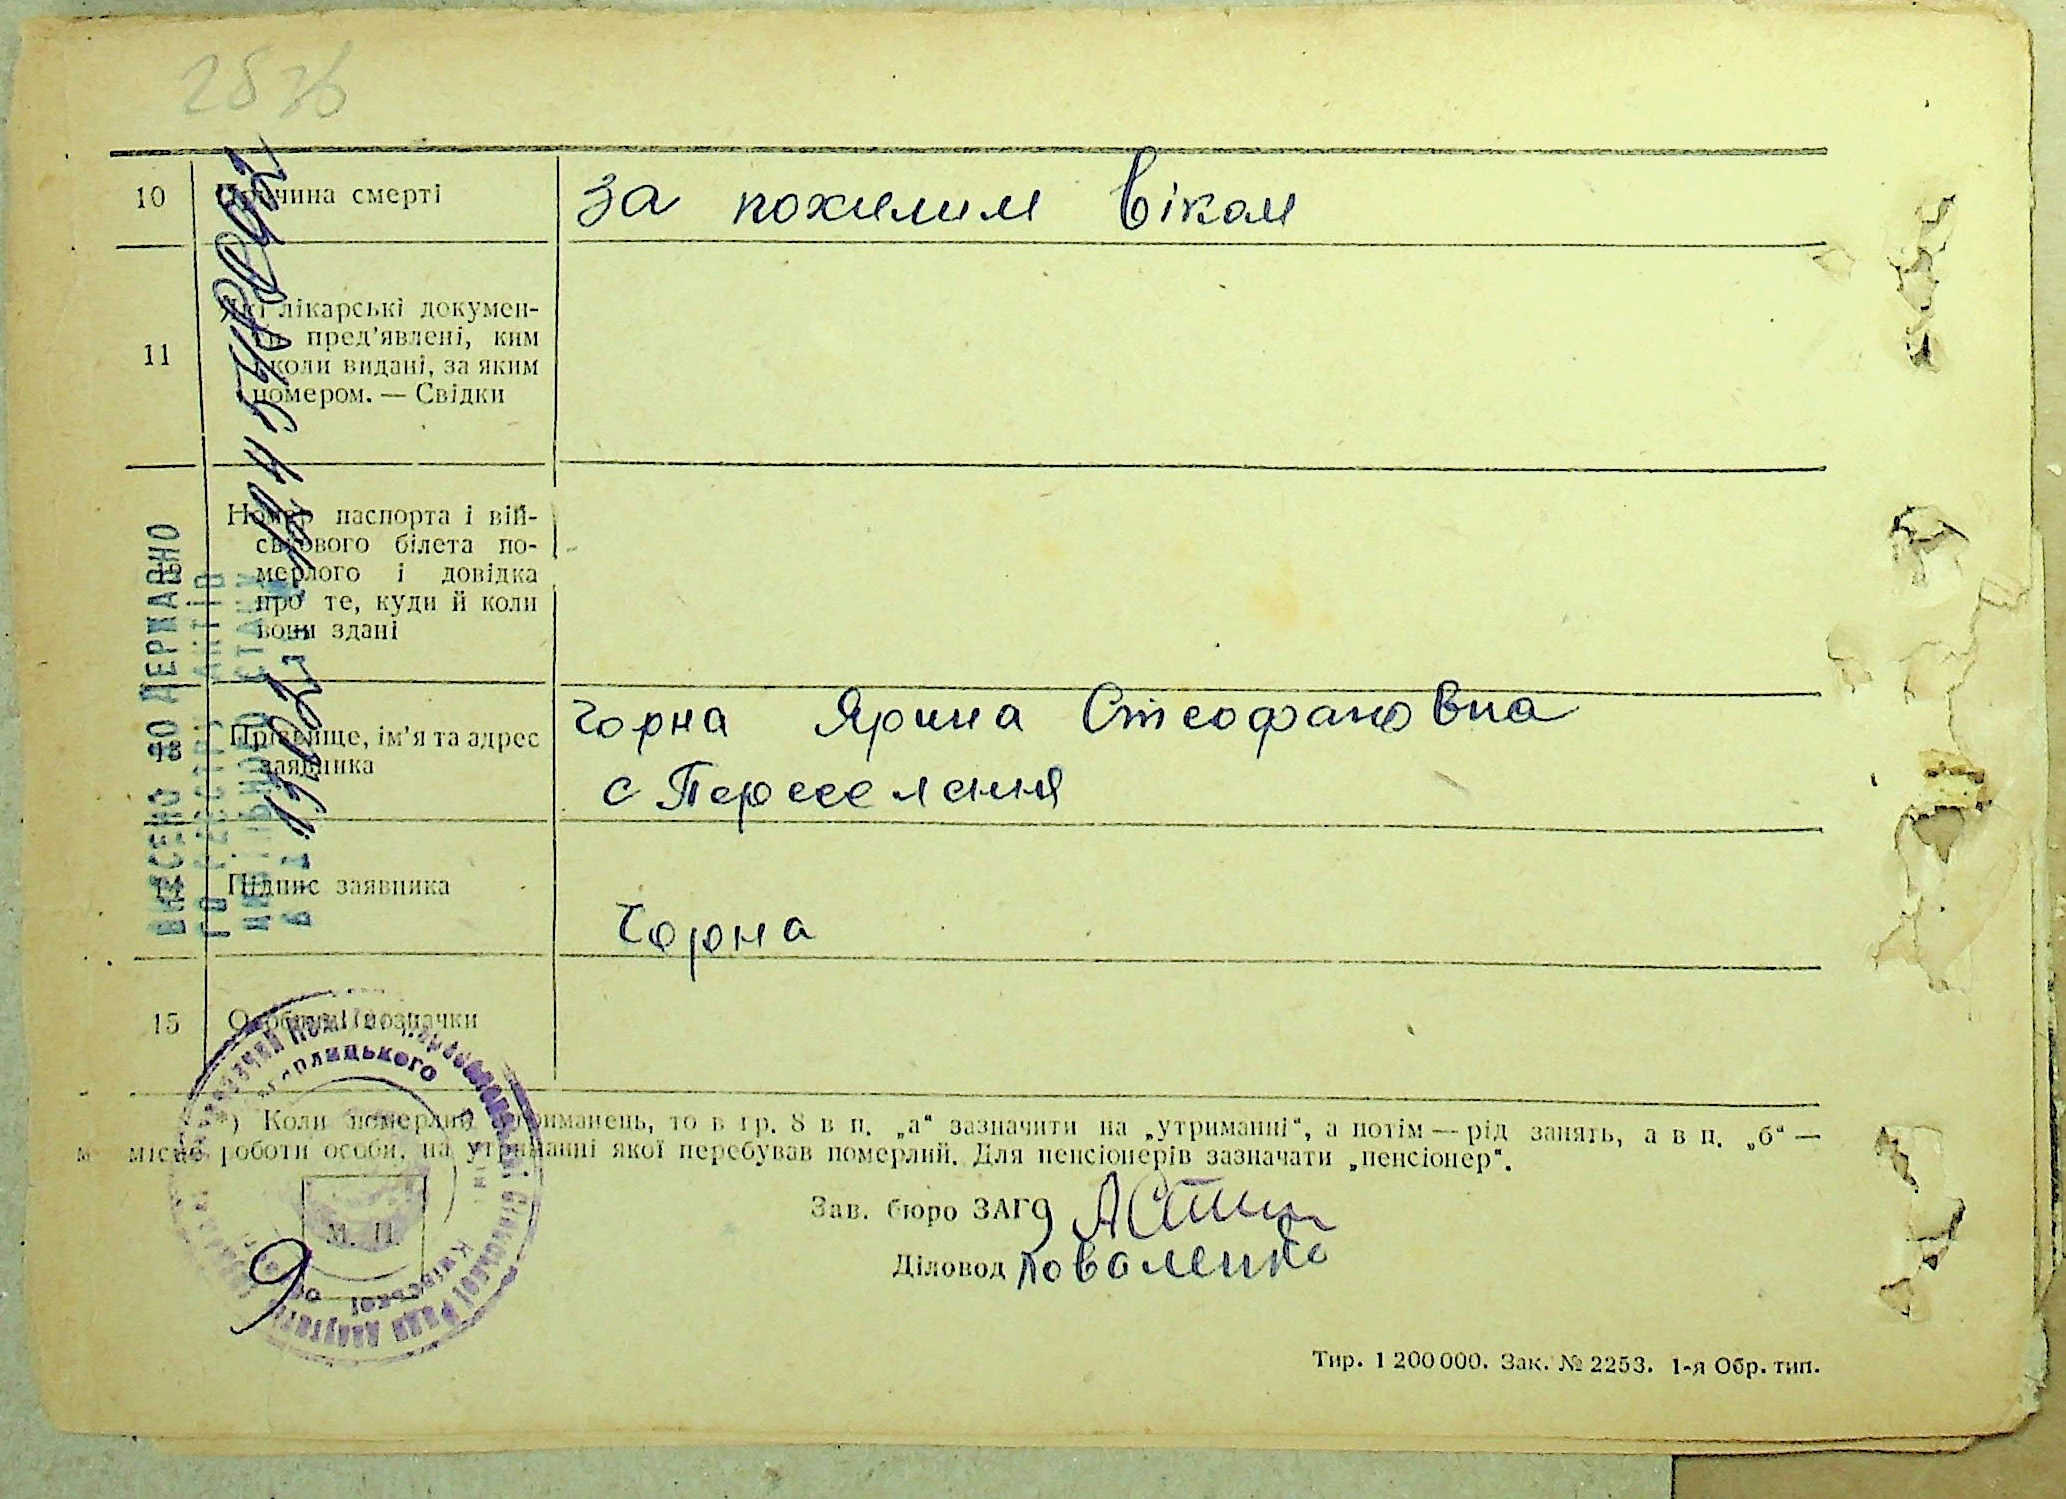 10 Причина смерті за похилим віком
11 Які лікарські докумен-
ти пред’явлені, ким
і коли видані, за яким
номером. — Свідки
Номер паспорта і вій-
ськового білета по-
мерлого і довідка
про те, куди й коли
вони здані
Чорна Ярина Стеофановна
13 Прізвище, ім’я та адрес
заявника
с Переселення
14 Підпис заявника
Чорна
15 Особливі позначки
*) Коли померлий утриманець, то в гр. 8 в п. „а“ зазначити на „утриманні“, а потім — рід занять, а в п. „б“ —
місце роботи особи, на утриманні якої перебував померлий. Для пенсіонерів зазначати „пенсіонер“.
Зав. бюро ЗАГС
Діловод Коваленко
М. П.
9
Тир. 1 200 000. Зак. № 2253. 1-я Обр. тип.
ВНЕСЕНО ДО ДЕРЖАВНО
ГО РЕЄСТРУ АКТІВ
ЦИВІЛЬНОГО СТАНУ